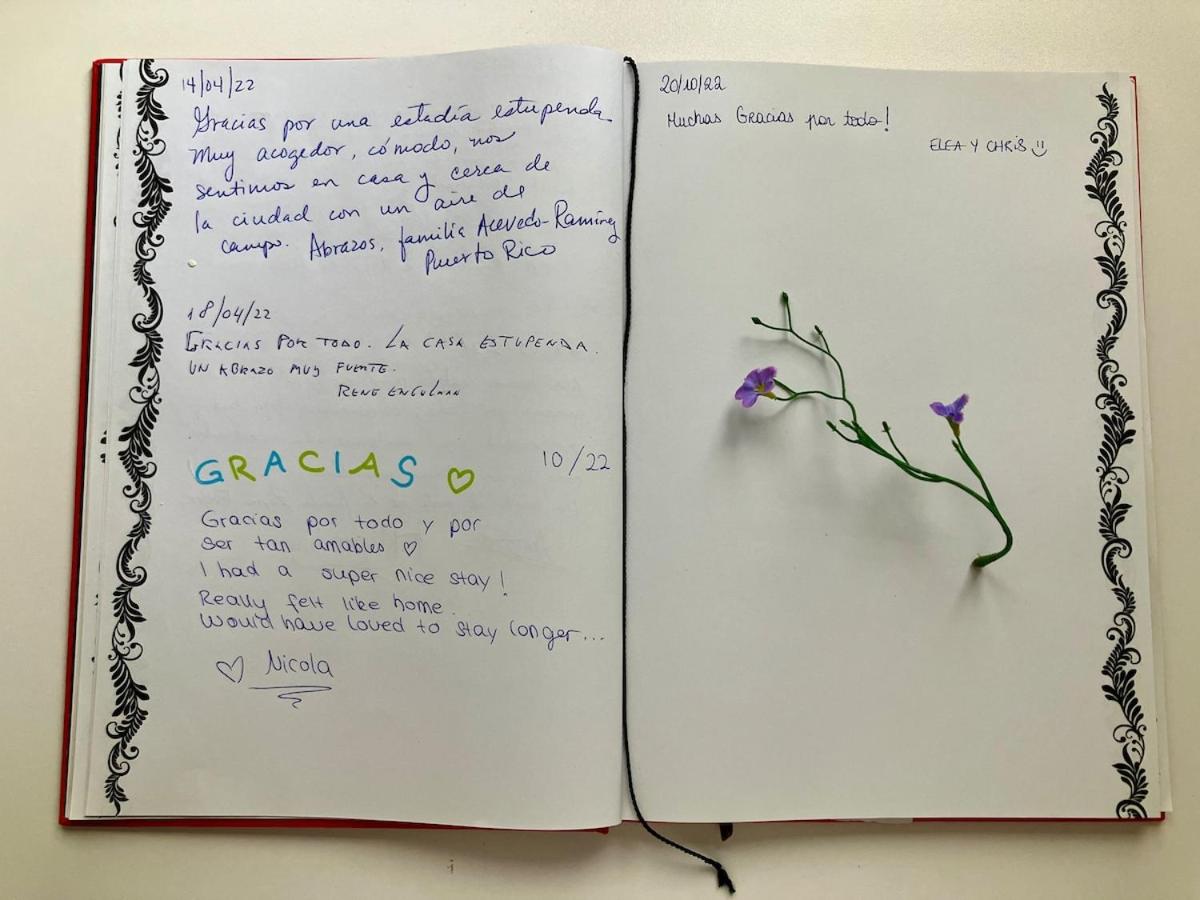 14/04/22
Gracias por una estadía estupenda
Muy acogedor, cómodo, nos
sentimos en casa y cerca de
la ciudad con un aire de
campo. Abrazos, familia Acevedo-Ramírez
Puerto Rico
18/04/22
GRACIAS POR TODO. LA CASA ESTUPENDA.
UN ABRAZO MUY FUERTE.
RENE
GRACIAS ♡
10/22
Gracias por todo y por
ser tan amables ♡
I had a super nice stay!
Really felt like home.
Would have loved to stay longer...
♡ Nicola
20/10/22
Muchas Gracias por todo!
ELEA Y CHRIS